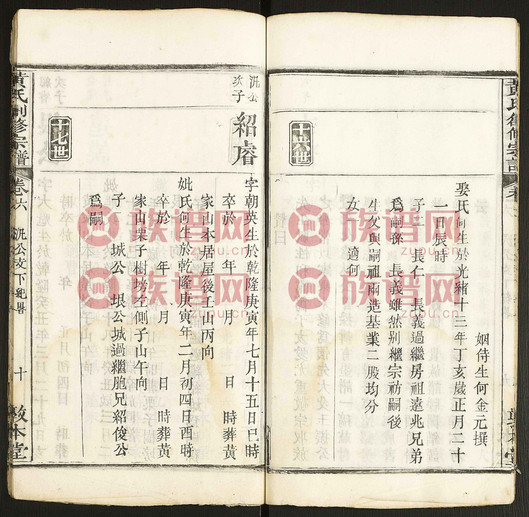 姻侍生何金元撰
娶氏何生於光緒十三年丁亥歲正月二十
一日辰時
子二 長仁 長義過繼房祖遠兆兄弟
爲嗣孫 長義雖然別繼宗祊嗣後
生父與嗣祖兩造基業二股均分
女 適何
十六世
敦本堂
沉公
次子
紹睿
十七世
字朝英生於乾隆庚寅年七月十五日巳時
卒於 年 月 日 時葬黃
家山本居屋後壬山丙向
妣氏何生於乾隆庚寅年二月初四日酉時
卒於 年 月 日 時葬黃
家山栗子樹塝左側子山午向
子二 城公 垠公城過繼胞兄紹俊公
爲嗣
黃氏創修宗譜
卷六
沉公支下紀畧
十
敦本堂
族譜网